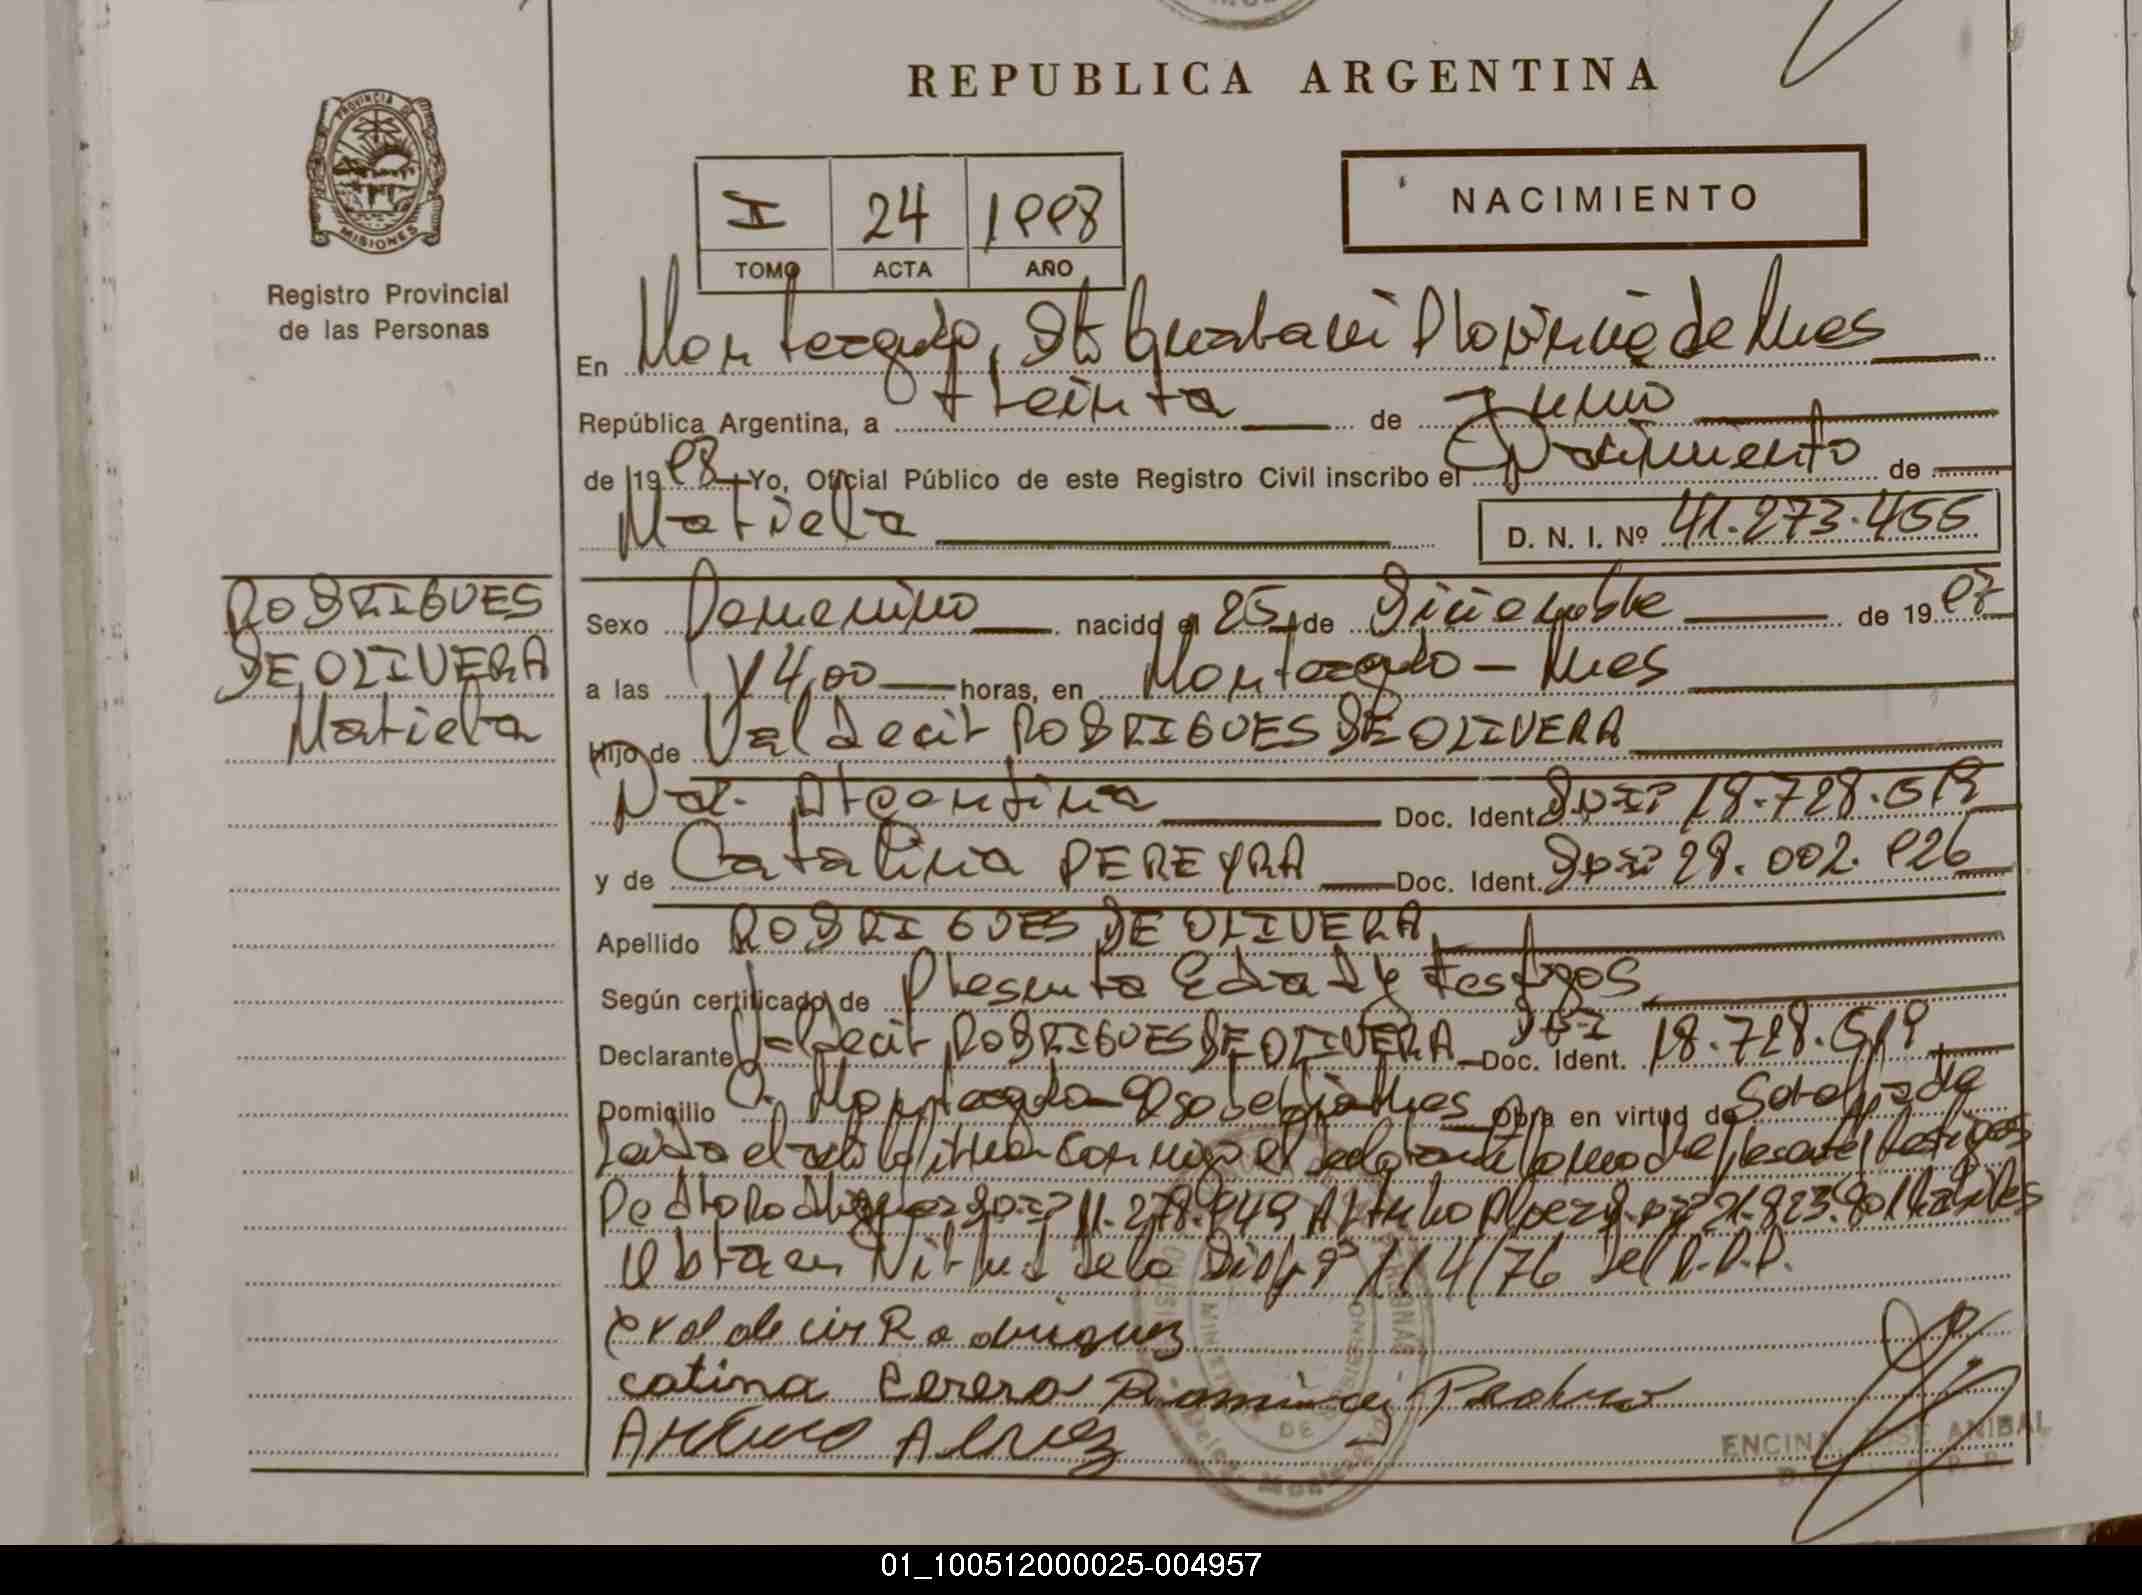 REPUBLICA ARGENTINA
PROVINCIA DE
MISIONES
Registro Provincial
de las Personas
I 24 1998
TOMO ACTA AÑO
NACIMIENTO
En Monteagudo, Dto Guarani Provincia de Mnes
República Argentina, a treinta de Junio
de 1998 Yo, Oficial Público de este Registro Civil inscribo el Nacimiento de
Mariela D. N. I. Nº 41.273.455
RODRIGUES
DE OLIVERA
Mariela
Sexo Femenino nacido el 25 de Diciembre de 1997
a las 14,00 horas, en Monteagudo - Mnes
Hijo de Valdecir RODRIGUES DE OLIVERA
Nac. Argentina Doc. Ident. 18.728.519
y de Catalina PEREYRA Doc. Ident. 29.002.926
Apellido RODRIGUES DE OLIVERA
Según certificado de Presenta Edad y testigos
Declarante Valdecir RODRIGUES DE OLIVERA Doc. Ident. DNI 18.728.519
Domicilio Monteagudo Mnes Obra en virtud de
Leida el acta la firman conmigo el testigos
Pedro 11.278.949 Arturo Alvez 21.823.801
Obra en Virtud de la Disp. 114/76 del R.P.P.
valdecir Rodriguez
catina Perera Ramírez Pedro
Arturo Alvez
ENCINA JOSE ANIBAL
01_100512000025-004957